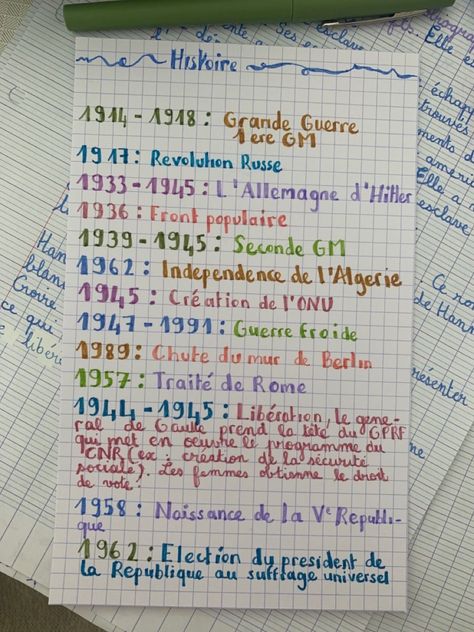 Histoire
1914 - 1918 : Grande Guerre
1ère GM
1917 : Revolution Russe
1933 - 1945 : L'Allemagne d'Hitler
1936 : Front populaire
1939 - 1945 : Seconde GM
1962 : Independence de l'Algerie
1945 : Création de l'ONU
1947 - 1991 : Guerre froide
1989 : Chute du mur de Berlin
1957 : Traité de Rome
1944 - 1945 : Libération, le gene-
ral de Gaulle prend la tête du GPRF
qui met en oeuvre le programme du
CNR (ex : création de la sécurité
sociale). Les femmes obtienne le droit
de vote !
1958 : Naissance de la Ve Republi-
que
1962 : Election du president de
la Republique au suffrage universel
esclave
Elle
échapp
trouvé
americ
Elle a
esclave
Ce
de Hann
présenter
Hann
blanc
ce qui
libéré